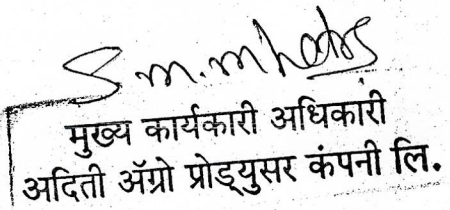 S. m. mhatre
मुख्य कार्यकारी अधिकारी
अदिती ॲग्रो प्रोड्युसर कंपनी लि.